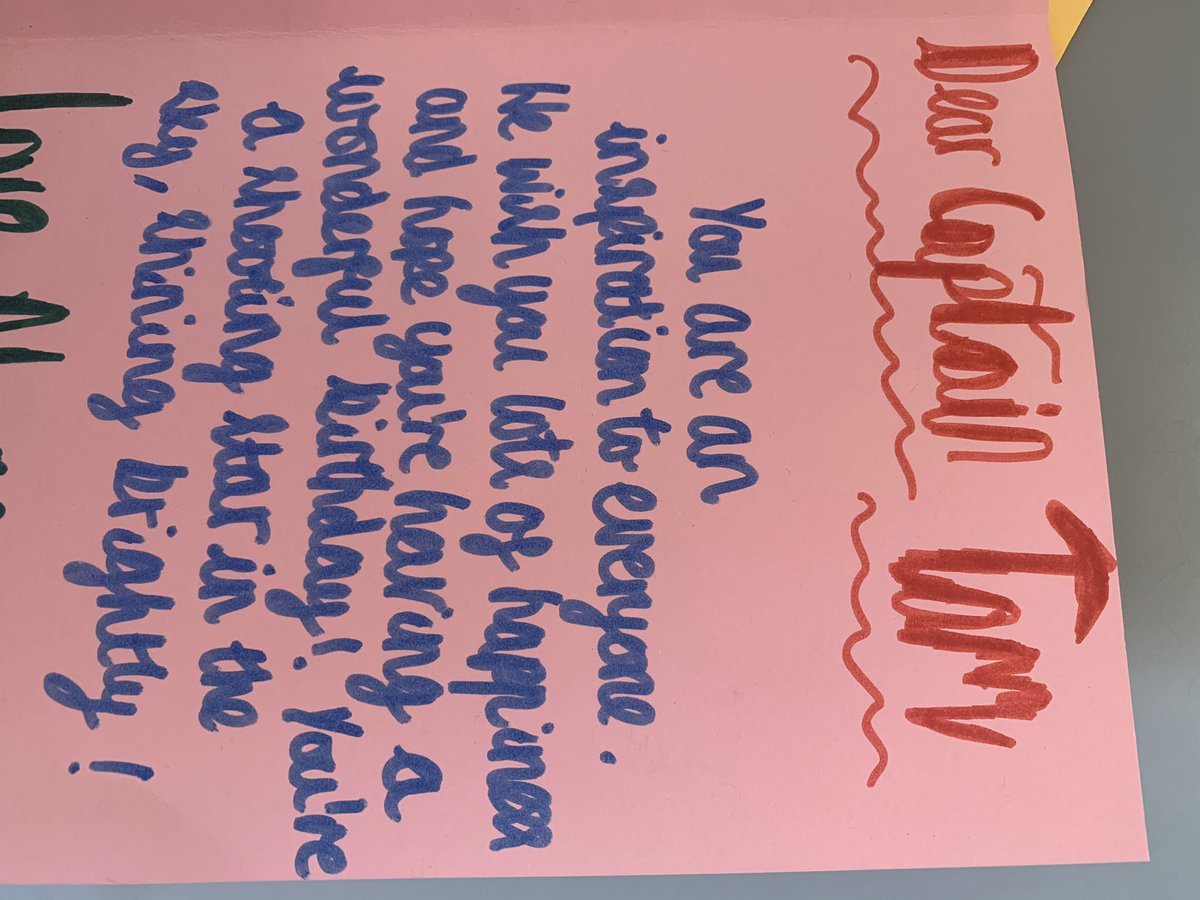 Dear Captain Tom
You are an
inspiration to everyone.
We wish you lots of happiness
and hope you're having a
wonderful birthday! You're
a shooting star in the
sky, shining brightly!